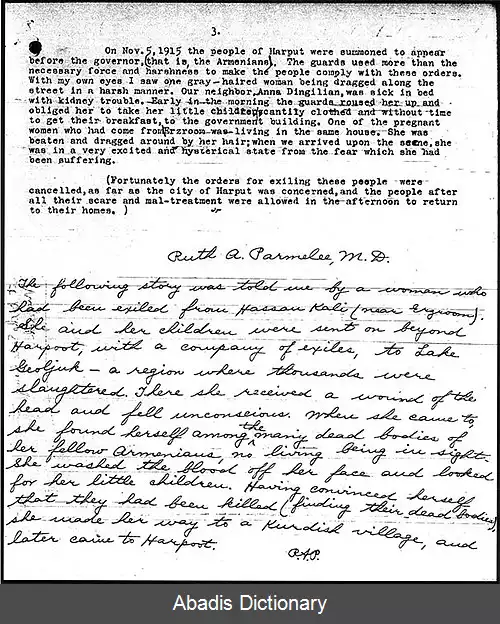 3.
On Nov.5,1915 the people of Harput were summoned to appear
before the governor,(that is, the Armenians). The guards used more than the
necessary force and harshness to make the people comply with these orders.
With my own eyes I saw one gray-haired woman being dragged along the
street in a harsh manner. Our neighbor,Anna Dingilian,was sick in bed
with kidney trouble. Early in the morning the guards roused her up and
obliged her to take her little children,scantily clothed and without time
to get their breakfast, to the government building. One of the pregnant
women who had come from Erzroom was living in the same house. She was
beaten and dragged around by her hair;when we arrived upon the scene,she
was in a very excited and hysterical state from the fear which she had
been suffering.
(Fortunately the orders for exiling these people were
cancelled,as far as the city of Harput was concerned,and the people after
all their scare and mal-treatment were allowed in the afternoon to return
to their homes. )
Ruth A. Parmelee, M.D.
The following story was told me by a woman who
had been exiled from Hassan Kali (near Erzroom).
She and her children were sent on beyond
Harpoot, with a company of exiles, to Lake
Geoljuk – a region where thousands were
slaughtered. There she received a wound of the
head and fell unconscious. When she came to,
she found herself among the many dead bodies of
her fellow Armenians, no living being in sight.
She washed the blood off her face and looked
for her little children. Having convinced herself
that they had been killed (finding their dead bodies),
she made her way to a Kurdish village, and
later came to Harpoot.
R.A.P.
Abadis Dictionary